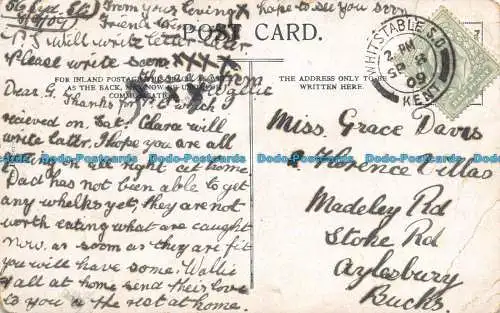 From your loving X hope to see you soon
Friend
P S Will write letter later.
Please write soon XXXX
POST CARD.
FOR INLAND POSTAGE
AS THE BACK,
COMMUNICATION
THE ADDRESS ONLY TO BE
WRITTEN HERE.
WHITSTABLE S.O.
2 PM
SP 8
09
KENT
Dear G. Thanks for P.C. which I
recieved on Sat. Clara will
write later. I hope you are all
well, all right at home.
Dad has not been able to get
any whelks yet, they are not
worth eating what are caught
now. as soon as they are fit
you will have some. Wallie
& all at home send their love
to you & the rest at home.
Miss Grace Davis
2 Florence Villas
Madeley Rd
Stoke Rd
Aylesbury
Bucks.
Dodo-Postcards Dodo-Postcards Dodo-Postcards Dodo-Postcards Dodo-Postcards